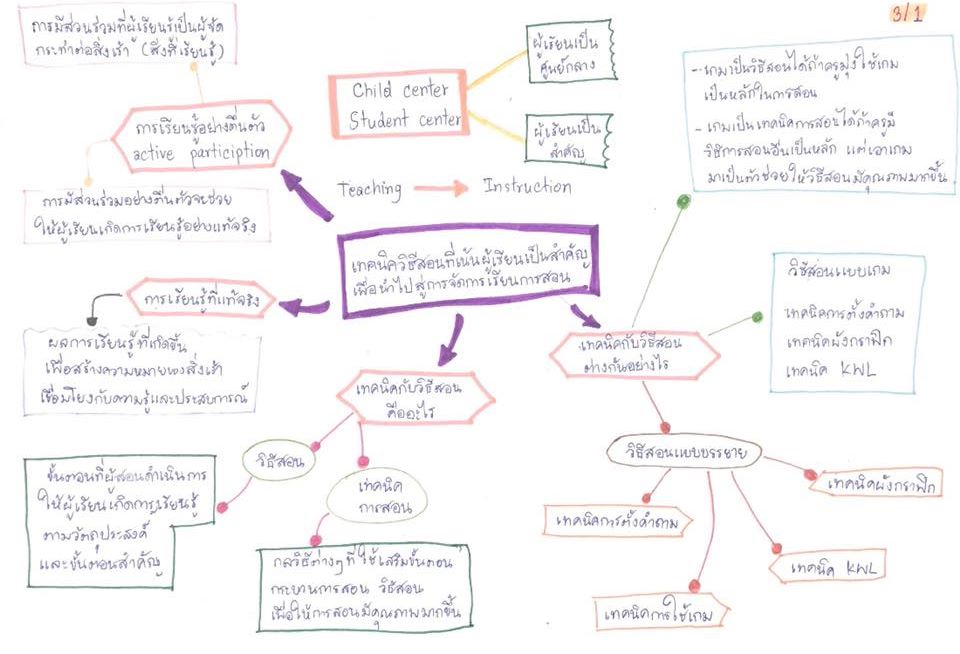 3/1
การมีส่วนร่วมที่ผู้เรียนรู้เป็นผู้จัด
กระทำต่อสิ่งเร้า (สิ่งที่เรียนรู้)
การเรียนรู้อย่างตื่นตัว
active particiption
การมีส่วนร่วมอย่างตื่นตัวจะช่วย
ให้ผู้เรียนเกิดการเรียนรู้อย่างแท้จริง
Child center
Student center
ผู้เรียนเป็น
ศูนย์กลาง
ผู้เรียนเป็น
สำคัญ
Teaching
Instruction
- เกมเป็นวิธีสอนได้ถ้าครูมุ่งใช้เกม
เป็นหลักในการสอน
- เกมเป็นเทคนิคการสอนได้ถ้าครูมี
วิธีการสอนอื่นเป็นหลัก แต่เอาเกม
มาเป็นตัวช่วยให้วิธีสอนมีคุณภาพมากขึ้น
เทคนิควิธีสอนที่เน้นผู้เรียนเป็นสำคัญ
เพื่อนำไปสู่การจัดการเรียนการสอน
การเรียนรู้ที่แท้จริง
ผลการเรียนรู้ที่เกิดขึ้น
เพื่อสร้างความหมายของสิ่งเร้า
เชื่อมโยงกับความรู้และประสบการณ์
เทคนิคกับวิธีสอน
คืออะไร
วิธีสอน
ขั้นตอนที่ผู้สอนดำเนินการ
ให้ผู้เรียนเกิดการเรียนรู้
ตามวัตถุประสงค์
และขั้นตอนสำคัญ
เทคนิค
การสอน
กลวิธีต่างๆที่ใช้เสริมขั้นตอน
กระบวนการสอน วิธีสอน
เพื่อให้การสอนมีคุณภาพมากขึ้น
เทคนิคกับวิธีสอน
ต่างกันอย่างไร
วิธีสอนแบบเกม
เทคนิคการตั้งคำถาม
เทคนิคผังกราฟิก
เทคนิค KWL
วิธีสอนแบบบรรยาย
เทคนิคการตั้งคำถาม
เทคนิคการใช้เกม
เทคนิค KWL
เทคนิคผังกราฟิก